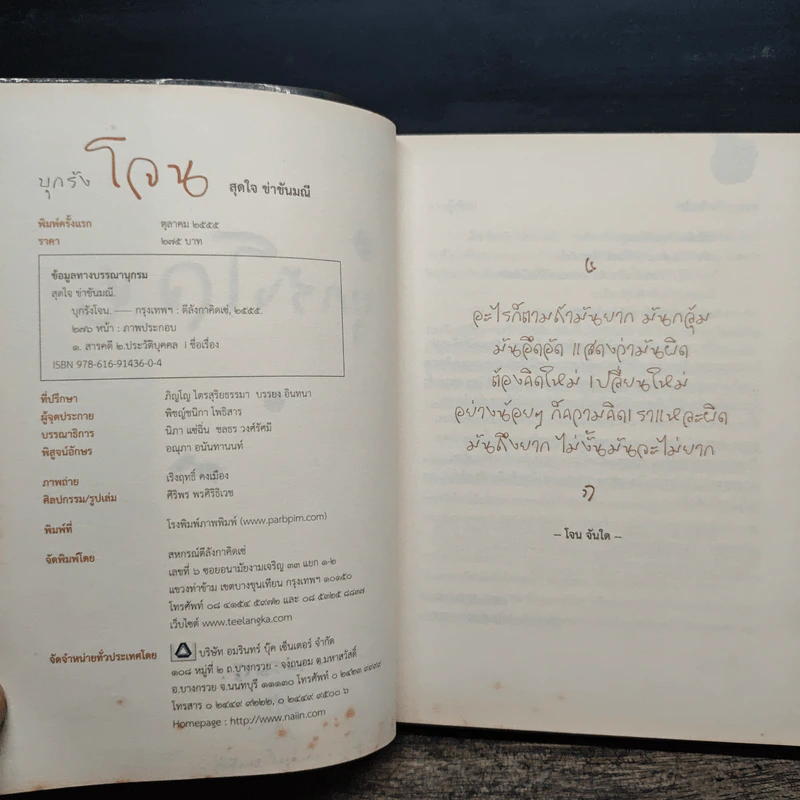 บุกรัง โจน สุดใจ ข่าขันมณี
พิมพ์ครั้งแรก ตุลาคม ๒๕๕๕
ราคา ๒๗๕ บาท
ข้อมูลทางบรรณานุกรม
สุดใจ ข่าขันมณี.
บุกรังโจน. —— กรุงเทพฯ : ตีลังกาคิดเซ่, ๒๕๕๕.
๒๗๖ หน้า : ภาพประกอบ
๑. สารคดี ๒.ประวัติบุคคล I ชื่อเรื่อง
ISBN 978-616-91436-0-4
ที่ปรึกษา ภิญโญ ไตรสุริยธรรมา บรรยง อินทนา
ผู้จุดประกาย พิชญ์ชนิกา โพธิสาร
บรรณาธิการ นิภา แซ่ฉิ่น ชลธร วงศ์รัศมี
พิสูจน์อักษร อณุภา อนันทานนท์
ภาพถ่าย เริงฤทธิ์ คงเมือง
ศิลปกรรม/รูปเล่ม ศิริพร พรศิริธิเวช
พิมพ์ที่ โรงพิมพ์ภาพพิมพ์ (www.parbpim.com)
จัดพิมพ์โดย สหกรณ์ตีลังกาคิดเซ่
เลขที่ ๖ ซอยอนามัยงามเจริญ ๓๓ แยก ๑-๒
แขวงท่าข้าม เขตบางขุนเทียน กรุงเทพฯ ๑๐๑๕๐
โทรศัพท์ ๐๘ ๔๑๕๔ ๕๙๗๒ และ ๐๘ ๕๙๒๕ ๘๘๓๗
เว็บไซต์ www.teelangka.com
จัดจำหน่ายทั่วประเทศโดย บริษัท อมรินทร์ บุ๊ค เซ็นเตอร์ จำกัด
๑๐๘ หมู่ที่ ๒ ถ.บางกรวย - จงถนอม ต.มหาสวัสดิ์
อ.บางกรวย จ.นนทบุรี ๑๑๑๓๐ โทรศัพท์ ๐ ๒๔๒๓ ๙๙๙๙
โทรสาร ๐ ๒๔๔๙ ๙๒๒๒, ๐ ๒๔๔๙ ๙๕๐๐ ๖
Homepage : http://www.naiin.com
อะไรก็ตามถ้ามันยาก มันกลุ้ม
มันอึดอัด แสดงว่ามันผิด
ต้องคิดใหม่ เปลี่ยนใหม่
อย่างน้อยๆ ก็ความคิดเราแหละผิด
มันถึงยาก ไม่งั้นมันจะไม่ยาก
– โจน จันใด –